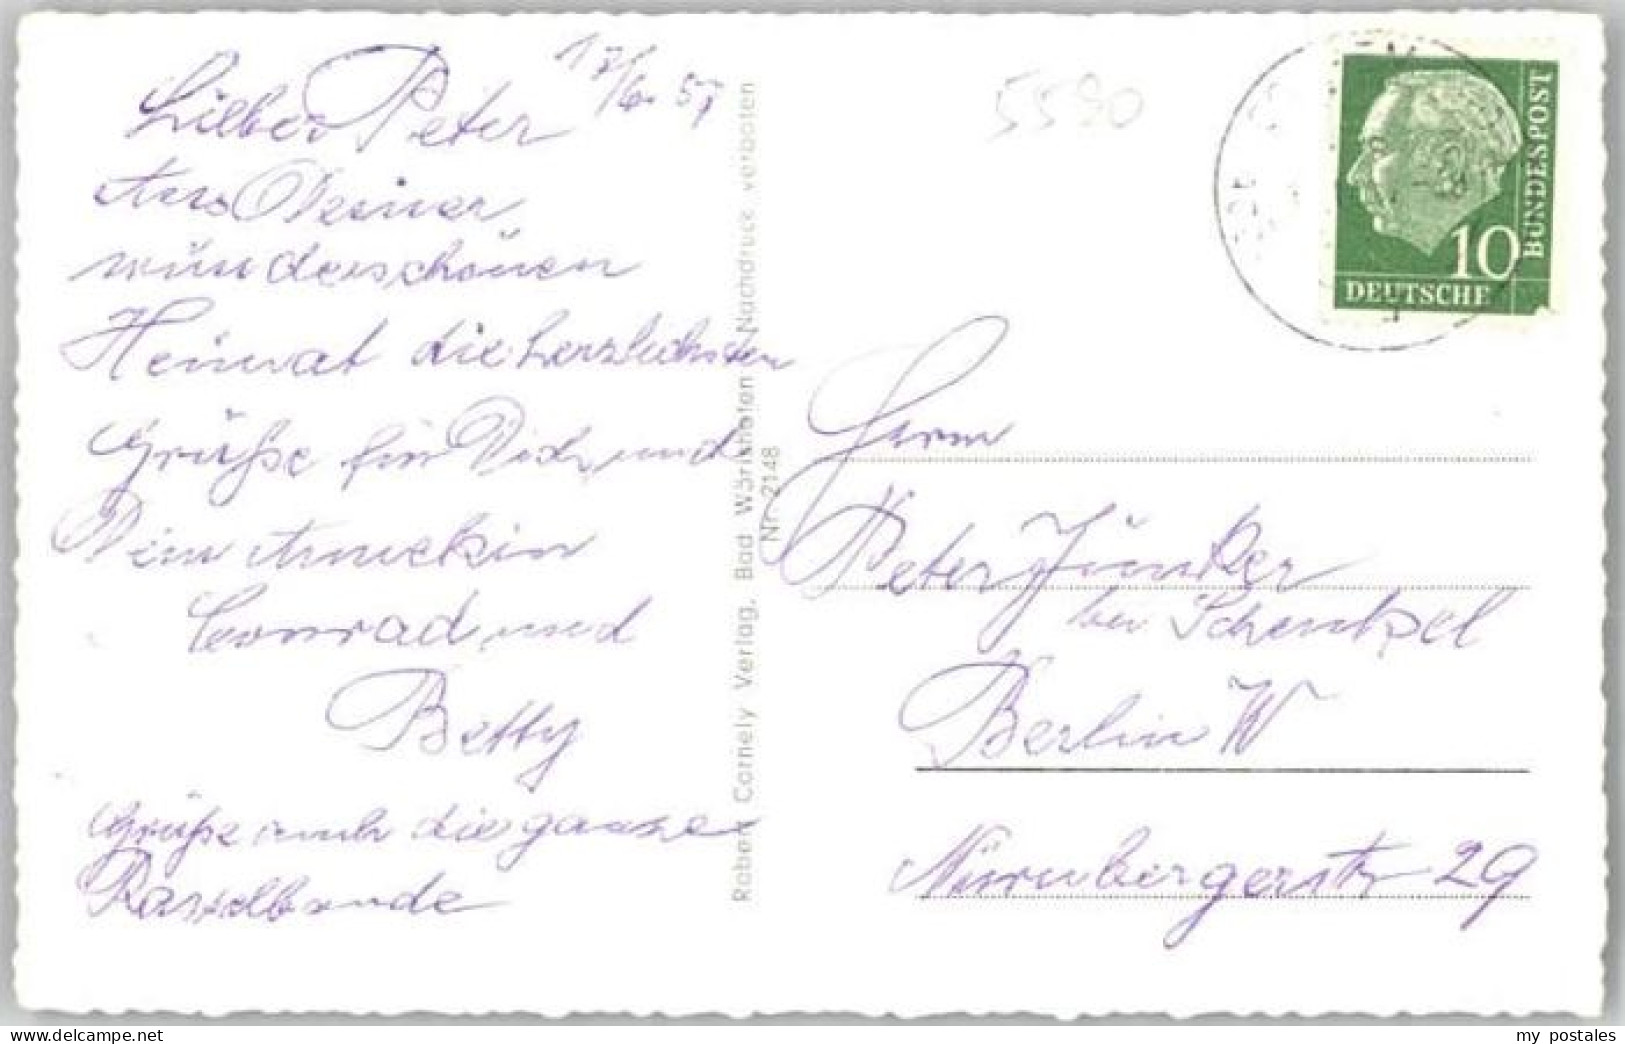 17/6. 57
Lieber Peter
Aus Deiner
wünderschönen
Heimat die herzlichsten
Grüße für Dich und
Dein
Conrad und
Betty
Grüße auch die ganze
Rasselbande
Raban Cornely Verlag, Bad Wörishofen Nachdruck verboten
Nr. 2148
5590
BUNDESPOST
10
DEUTSCHE
Herrn
Peter Jünker
bei Schenkel
Berlin W
Nürnbergerstr 29
my postales